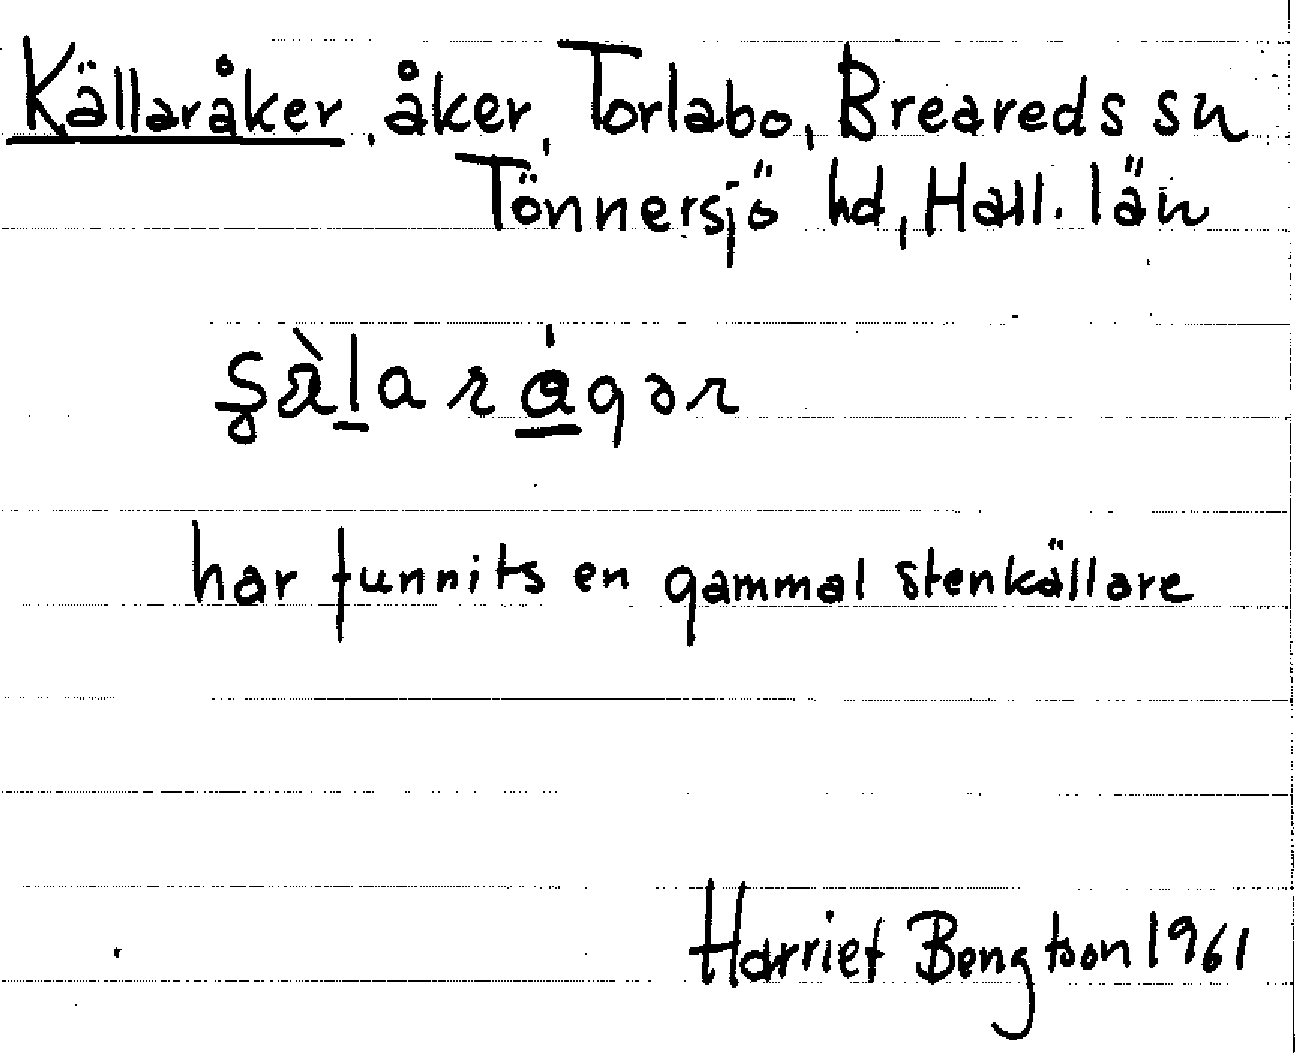 Källaråker, åker, Torlabo, Breareds sn
Tönnersjö hd, Hall. län
har funnits en gammal stenkällare
Harriet Bengtson 1961